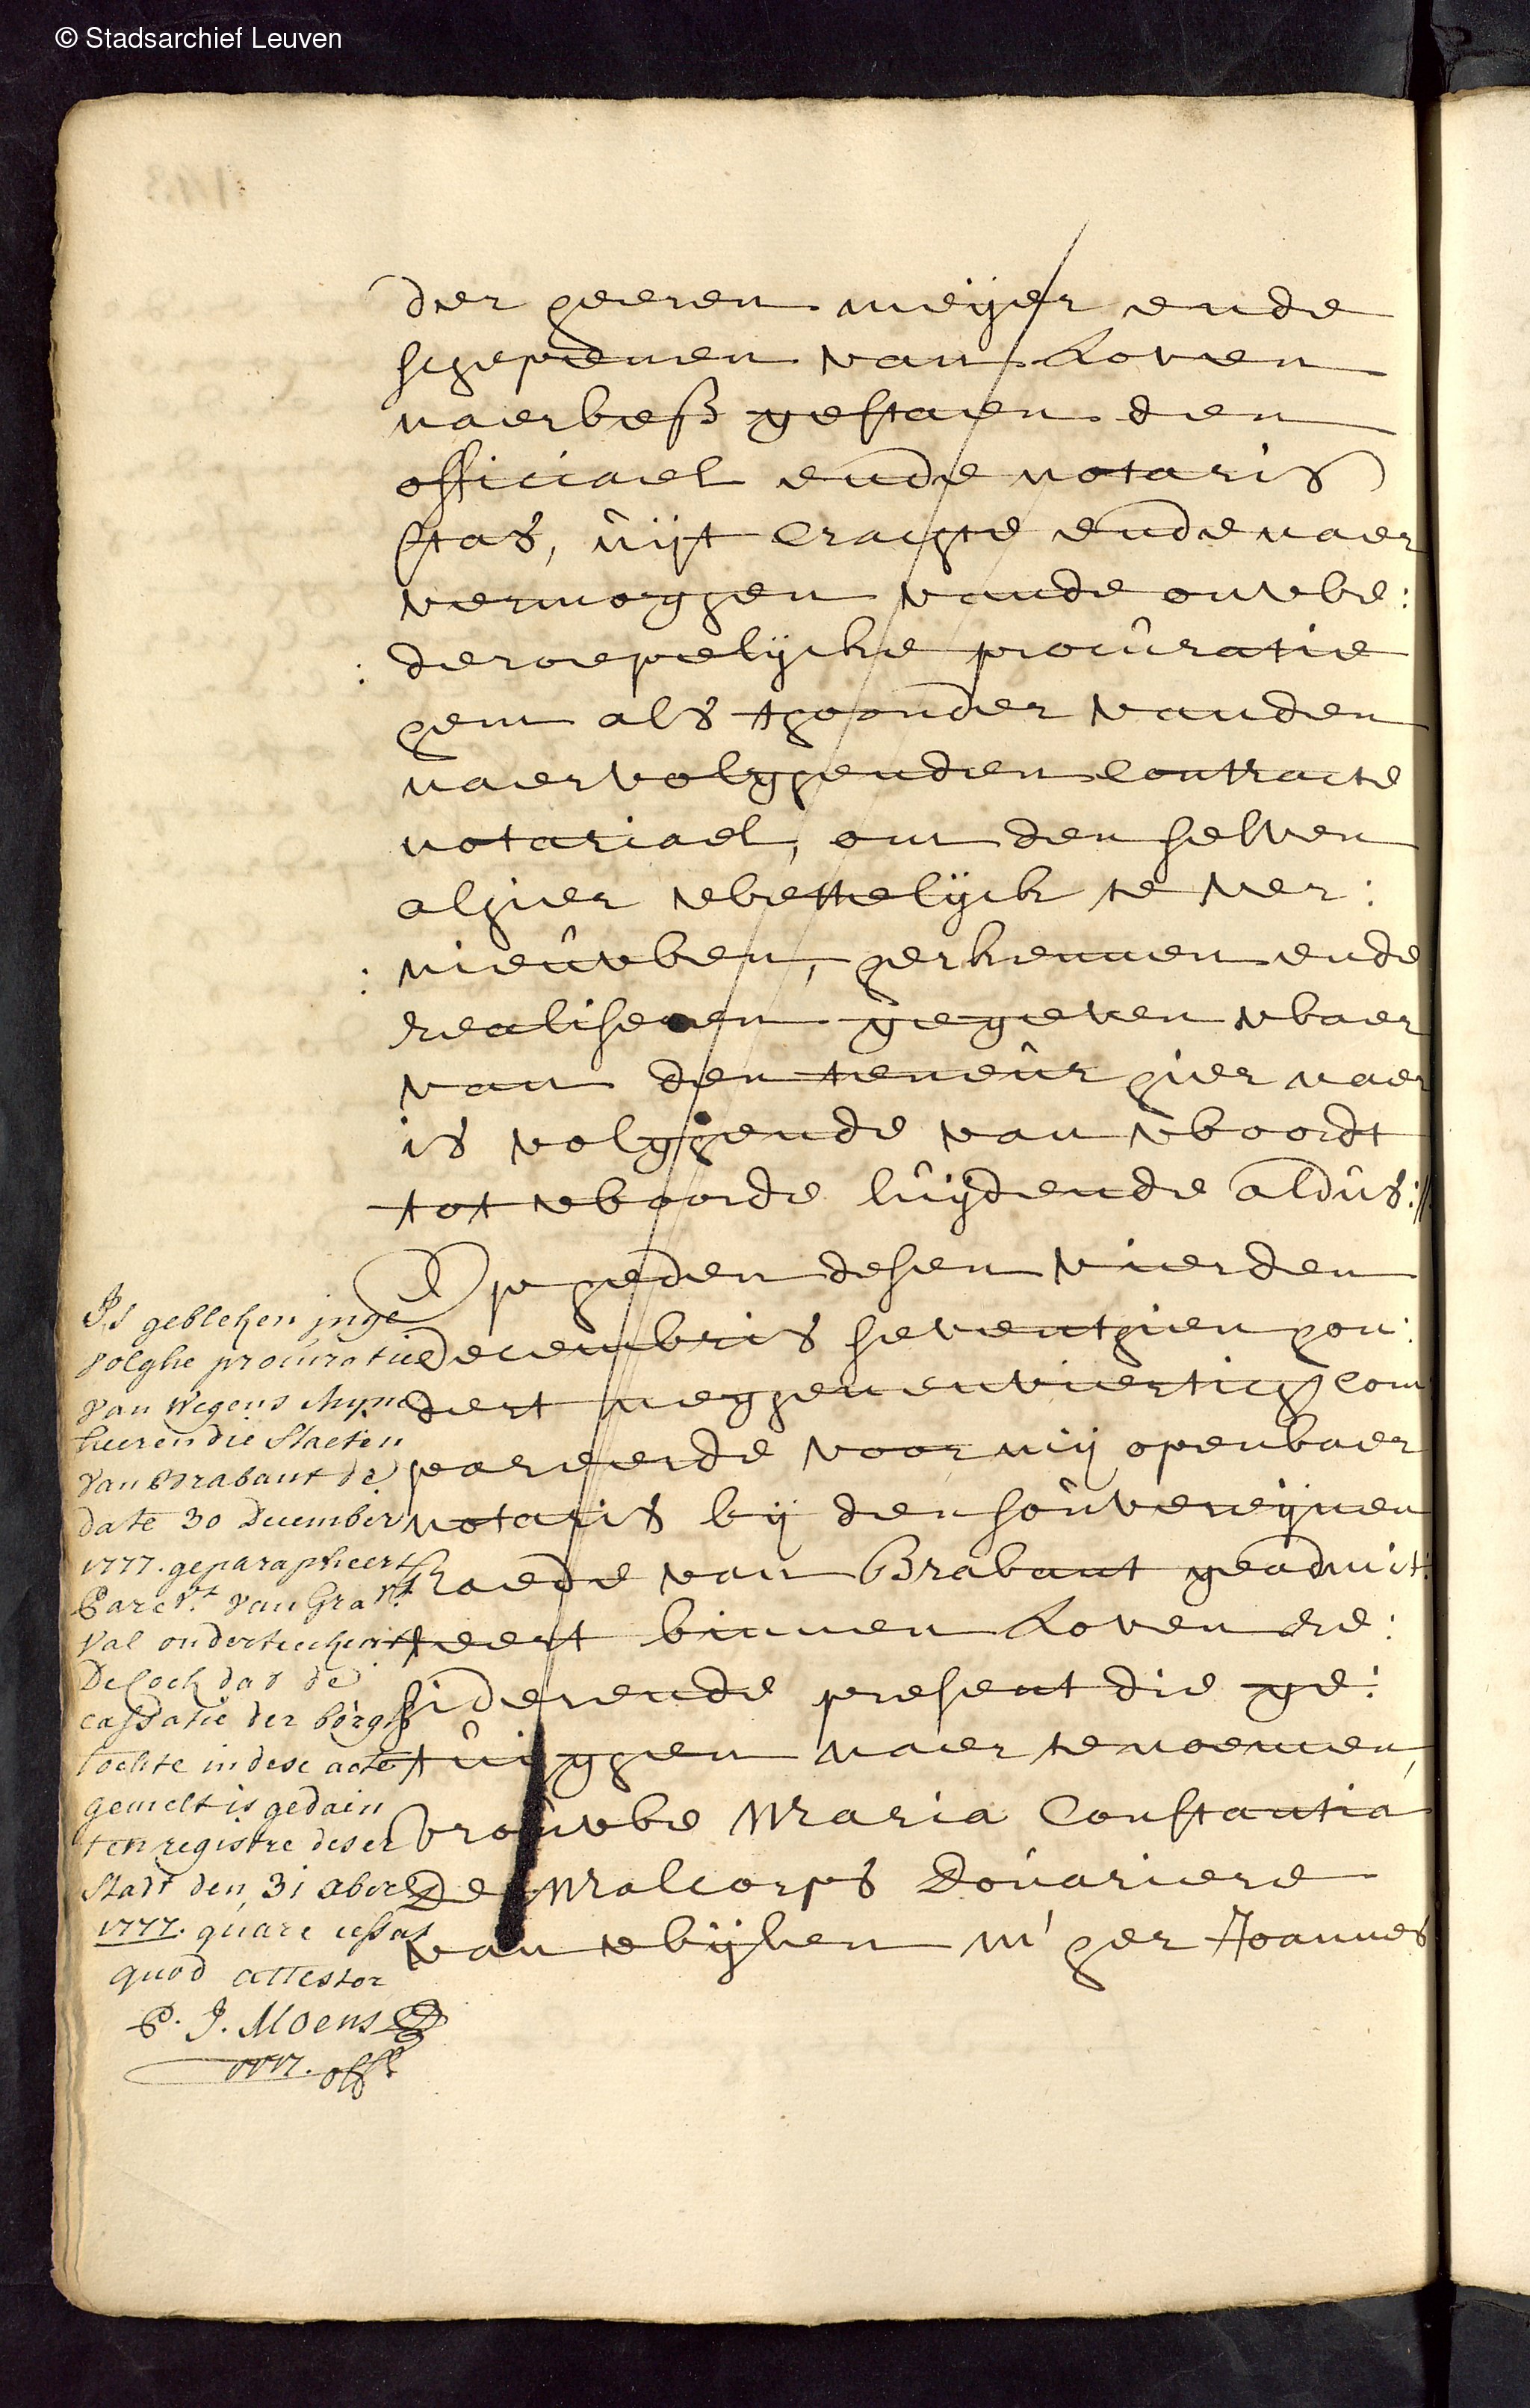 © Stadsarchief Leuven
der heeren meÿer ende
schepenen van Loven
naerbess gestaen den
officiael ende notaris
Stas, uÿt crachte ende naer
vermoghen vande onwe:
: deroepelÿcke procúratie
hem als thoonder vanden
naervolghenden contracte
notariael, om den selven
alhier wettelÿck te ver:
: nieúwen, herkennen ende
realiseren gegeven waer
van den teneúr hier naer
is volghende van woordt
tot woorde lúÿdende aldús://
Op heden desen vierden
decembris seventhien hon:
dert neghenenviertich com
pareerde voor mij openbaer
notaris bij den soúvereÿnen
raede van Brabant geadmit:
teert binnen Loven re:
siderende present die ge:
túÿghen naer te noemen,
vroúwe Maria Constantia
De Malcorps Doúariere
van wÿlen m' her Joannes
Is gebleken inge
volghe procúratie
van wegens mÿne
heeren die Staeten
van Brabant de
date 30 December
1777. geparapheert
van Gra
val onderteeckent
De Cock dat de
cassatie der borgh
tochte in dese acte
gemelt is gedaen
ten registre deser
Stadt den 31 xbere
1777. qúare cessat
quod attestor
P. J. Moens
1777. offl